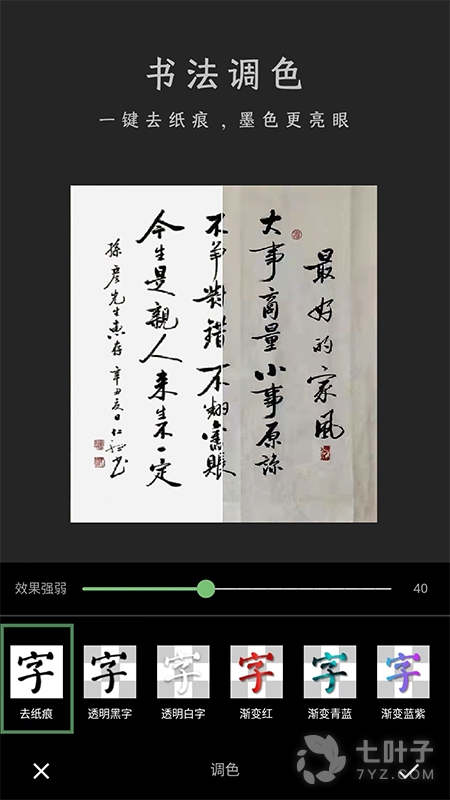 书法调色
一键去纸痕，墨色更亮眼
最好的家风
大事商量小事原谅
不争对错不翻旧账
今生是亲人来生不一定
孙彦先生惠存辛丑
效果强弱
40
字
字
字
字
字
字
去纸痕
透明黑字
透明白字
渐变红
渐变青蓝
渐变蓝紫
调色
七叶子
7YZ.COM